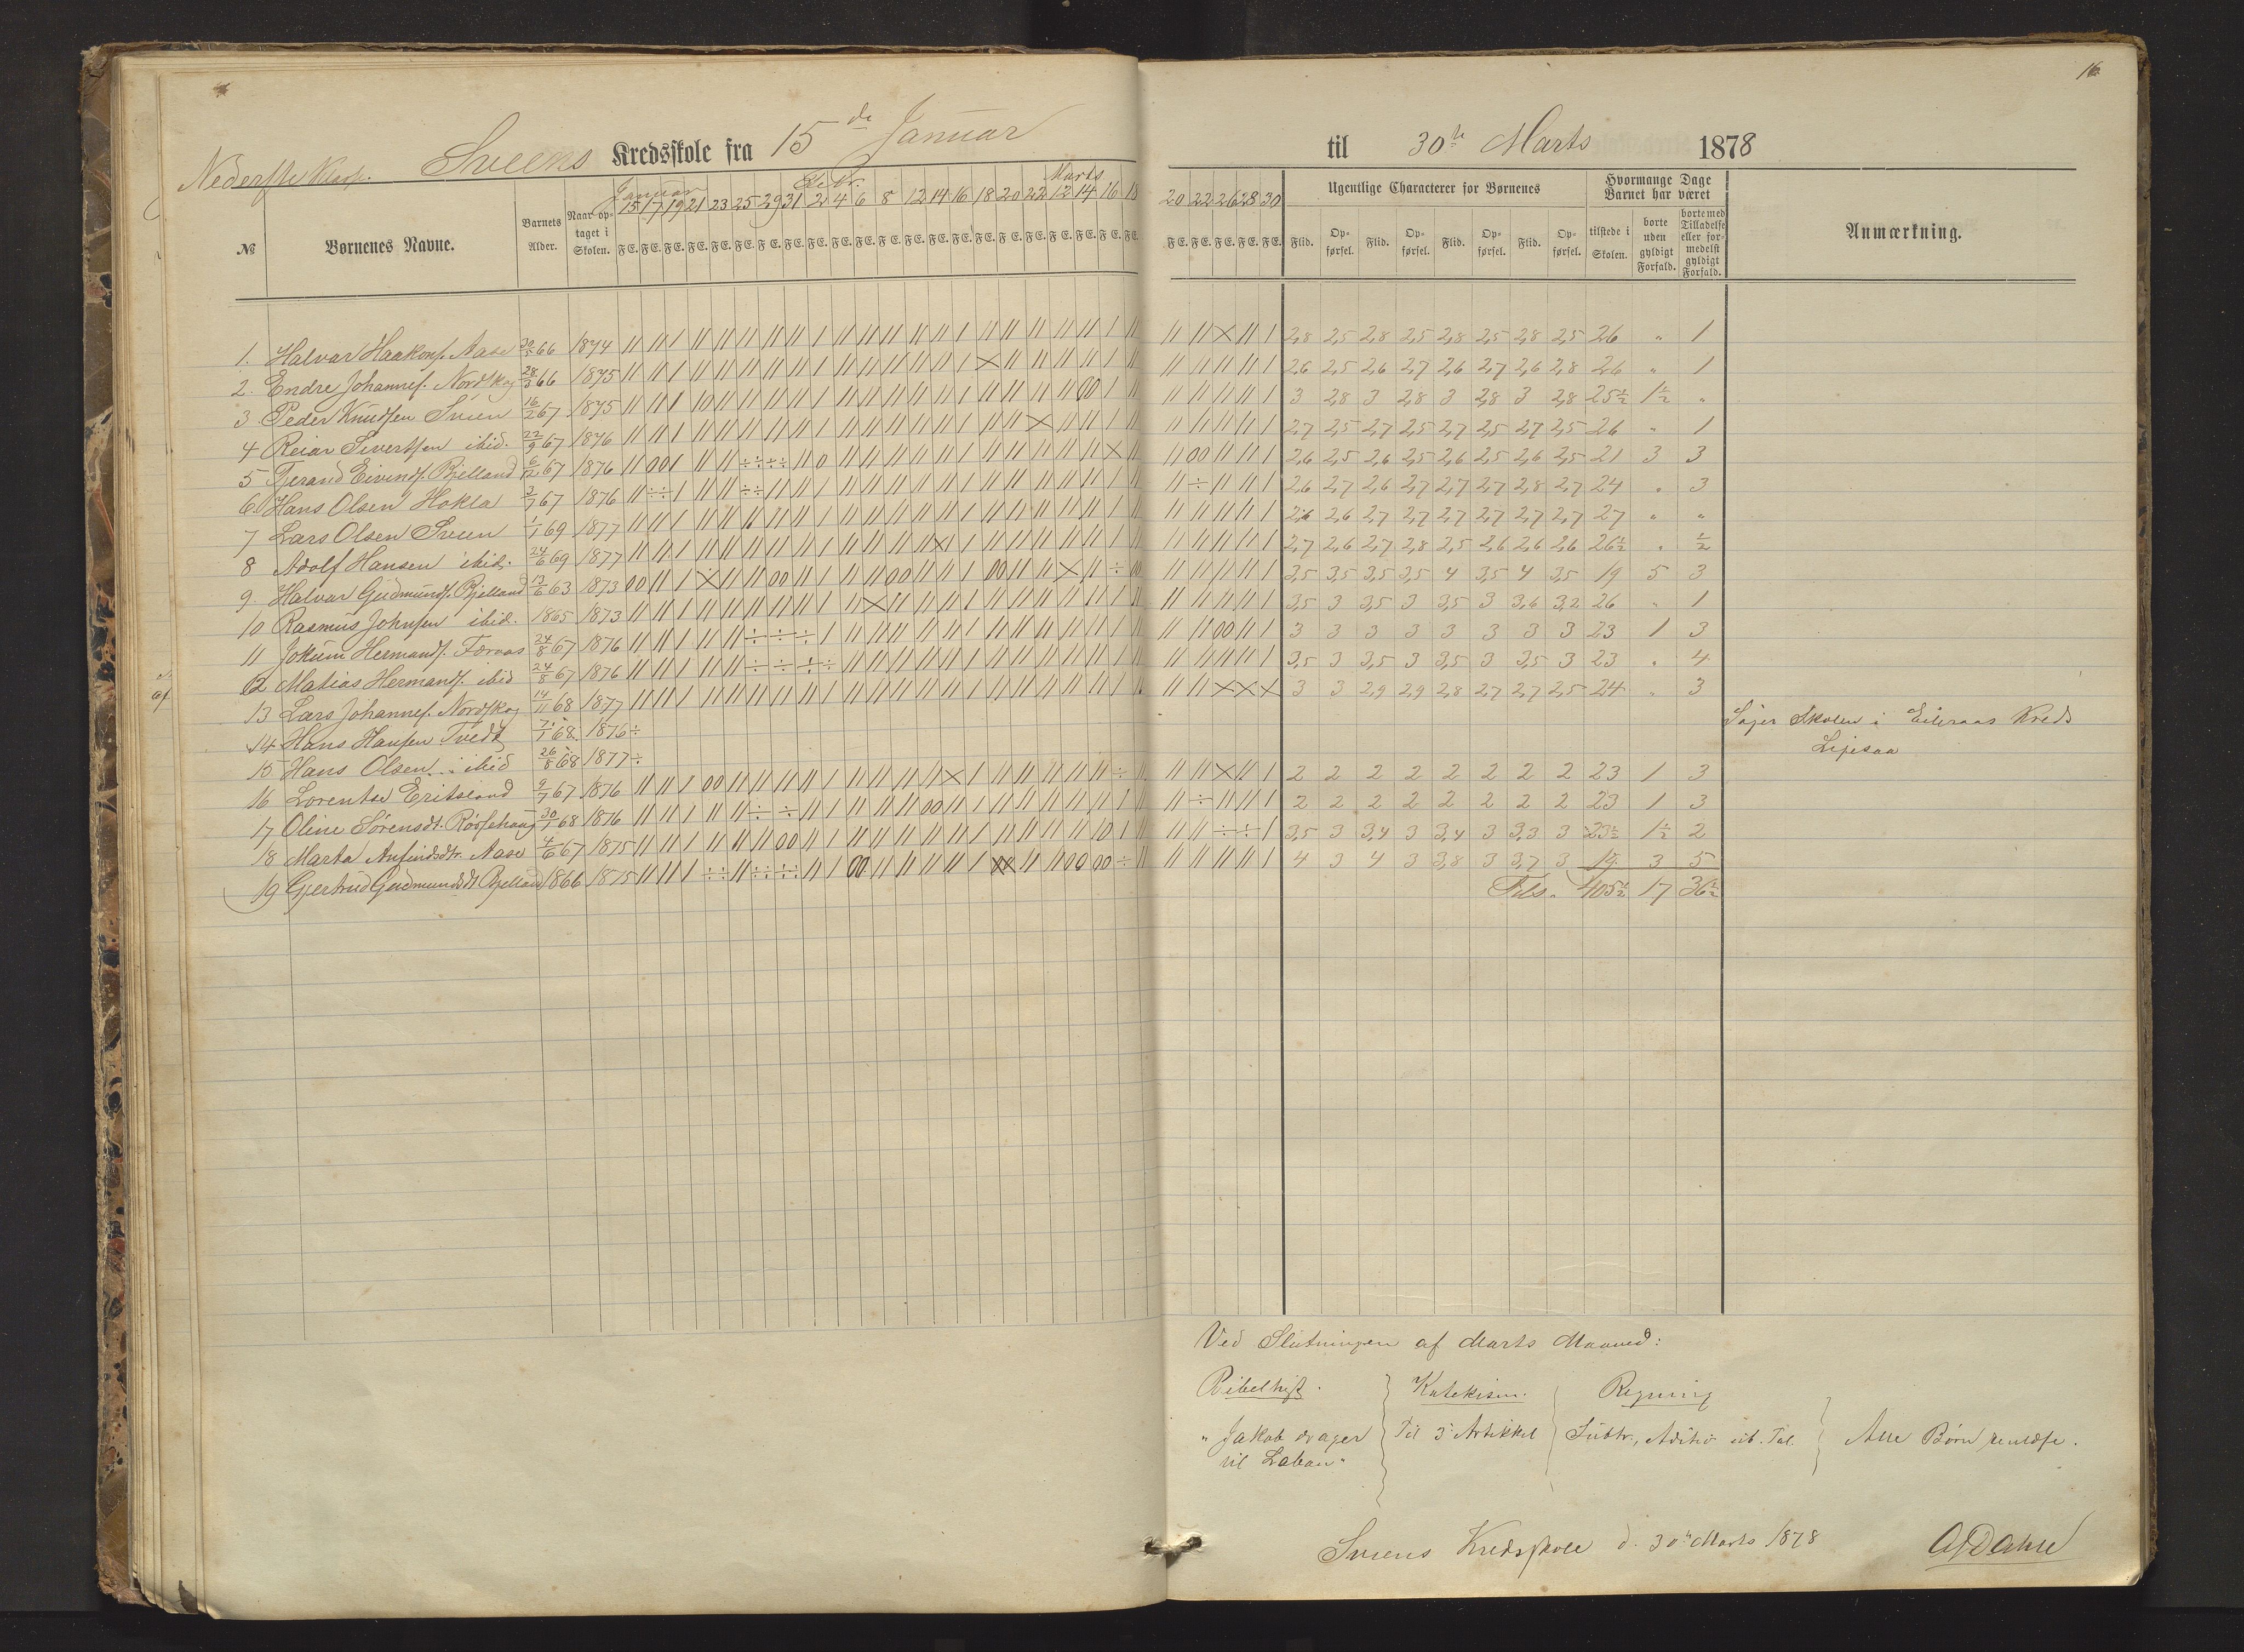 16
Sveens Kredsskole fra 15de Januar til 30te Marts 1878
Nederste Klasse.
Januar Febr. Marts
15 17 19 21 23 25 29 31 2 4 6 8 12 14 16 18 20 22 12 14 16 18 20 22 26 28 30
№ Børnenes Navne. Barnets Alder. Naar optaget i Skolen. F E. Ugentlige Characterer for Børnenes Flid. Opførsel. Flid. Opførsel. Flid. Opførsel. Flid. Opførsel. Hvormange Dage Barnet har været tilstede i Skolen. borte uden gyldigt Forfald. borte med Tilladelse eller formedelst gyldigt Forfald. Anmærkning.
1. Halvar Haakons. Aase 29/5 66 1874 2,8 2,5 2,8 2,5 2,8 2,5 2,8 2,5 26 " 1
2. Endre Johannes. Nordskog 28/3 66 1875 2,6 2,5 2,6 2,7 2,6 2,7 2,6 2,8 26 " 1
3 Peder Knudsen Sveen 16/2 67 1875 3 2,8 3 2,8 3 2,8 3 2,8 25½ 1½ "
4 Reiar Sivertsen ibid. 22/9 67 1876 2,7 2,5 2,7 2,5 2,7 2,5 2,7 2,5 26 " 1
5 Tjerand Eivinds. Bjelland 6/12 67 1876 2,6 2,5 2,6 2,5 2,6 2,5 2,6 2,5 21 3 3
6 Hans Olsen Hokla 3/7 67 1876 2,6 2,7 2,6 2,7 2,7 2,7 2,8 2,7 24 " 3
7 Lars Olsen Sveen 1/1 69 1877 2,6 2,6 2,7 2,7 2,7 2,7 2,7 2,7 27 " "
8 Adolf Hansen ibid. 24/6 69 1877 2,7 2,6 2,7 2,8 2,5 2,6 2,6 2,6 26½ " ½
9. Halvar Gudmunds. Bjelland 13/6 63 1873 3,5 3,5 3,5 3,5 4 3,5 4 3,5 19 5 3
10 Rasmus Johnsen ibid. 1865 1873 3,5 3 3,5 3 3,5 3 3,6 3,2 26 " 1
11 Jokum Hermands. Færaas 24/8 67 1876 3 3 3 3 3 3 3 3 23 1 3
12 Matias Hermands. ibid 24/8 67 1876 3,5 3 3,5 3 3,5 3 3,5 3 23 " 4
13 Lars Johannes. Nordskog 14/11 68 1877 3 3 2,9 2,9 2,8 2,7 2,7 2,5 24 " 3
14 Hans Hansen Tvedt 7/1 68 1876 ÷ Søger Skolen i Eileraas Kreds
15 Hans Olsen ibid 26/8 68 1877 ÷ Ligesaa
16 Lorentse Eritsland 9/7 67 1876 2 2 2 2 2 2 2 2 23 1 3
17 Oline Sørensdt. Røssehaug 30/1 68 1876 2 2 2 2 2 2 2 2 23 1 3
18 Marta Anfindsdtr. Aase 4/6 67 1875 3,5 3 3,4 3 3,4 3 3,3 3 23½ 1½ 2
19 Gjertrud Gudmundsdt Bjelland 1866 1875 4 3 4 3 3,8 3 3,7 3 19 3 5
Tils. 405½ 17 36½
Ved Slutningen af Marts Maaned:
Bibelhist. Katekism. Regning
"Jakob drager Til 3 Artikkel Subtr., Aditio ub. Tal. Alle Børn
til Laban"
Sveens Kredsskole d. 30te Marts 1878